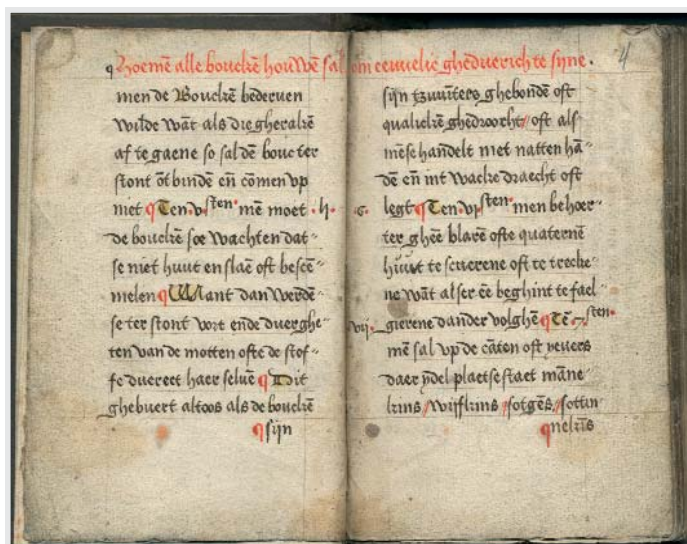 ¶ Hoemē alle bouckē houwē sal om eeuuelic ghēduerich te sijne.
men de Bouckē bederuen
wilde wāt als die gherakē
af te gaene so sal dē bouc ter
stont ōtbindē eñ comen vp
niet ¶ Ten .v. sten. mē moet
de bouckē soe wachten dat-
se niet huut en slaē oft bescē-
melen ¶ Want dan werdē-
se ter stont vort ende duerghe-
ten van de motten ofte de stof-
fe duereet haer seluē ¶ Dit
ghebuert altoos als de bouckē
¶ sijn
4
sijn tzwinters ghebondē oft
qualickē ghedroocht // oft als-
mēse handelt met natten hā-
dē eñ int wacke draecht oft
.6. legt ¶ Ten .vj. sten. men behoer-
ter gheē blarē ofte quaternē
huut te scuerene oft te trecke-
ne wāt alser eē beghint te fael-
vij. gierene dander volghē ¶ Tē .7. sten.
mē sal vp de cāten oft yeuers
daer ydel plaetse staet māne-
kins / wijfkins / sotgēs / sottin-
¶ nekīs